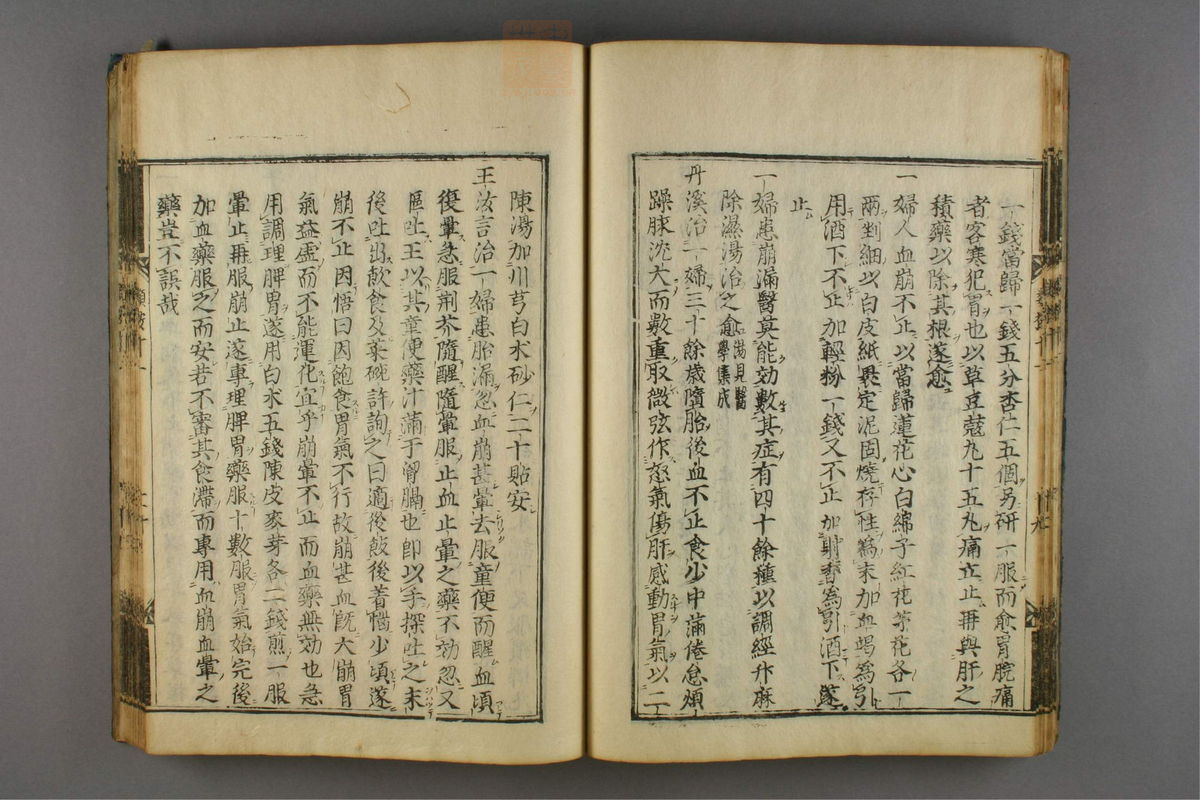 一錢當歸一錢五分杏仁五個另研一服而愈胃脘痛
者客寒犯胃也以草豆蔻丸十五丸痛立止再與肝之
積藥以除其根遂愈
一婦人血崩不止以當歸蓮花心白綿子紅花茅花各一
兩剉細以白皮紙褁定泥固燒存性爲末加血竭爲引
用酒下不止加輕粉一錢又不止加射香爲引酒下遂
止
一婦患崩漏醫莫能効數其症有四十餘種以調經升麻
除濕湯治之愈湯見醫學集成
丹溪治一婦三十餘歳隨胎後血不止食少中滿倦怠煩
躁脉沈大而數重取微弦作怒氣傷肝感動胃氣以二
陳湯加川芎白朮砂仁二十貼安
王汝言治一婦患胎漏忽血崩甚暈去服童便而醒血頃
復暈急服荆芥隨醒隨暈服止血止暈之藥不効忽又
嘔吐王以其童便藥汁滿于胷膈也即以手探吐之末
後吐出飲食及菜碗許詢之曰適後飯後著惱少頃遂
崩不止因悟曰因飽食胃氣不行故崩甚血旣大崩胃
氣益虛而不能運化宜乎崩暈不止而血藥無効也急
用調理脾胃遂用白朮五錢陳皮麥芽各二錢煎一服
暈止再服崩止遂專理脾胃藥服十數服胃氣始完後
加血藥服之而安若不審其食滯而專用血崩血暈之
藥豈不誤哉